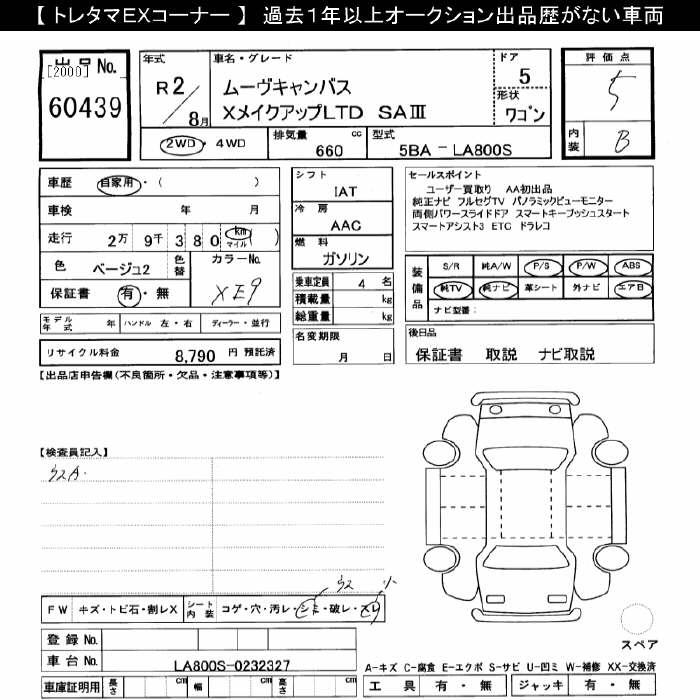 【 トレタマEXコーナー 】 過去1年以上オークション出品歴がない車両
出品 No.
[2000]
60439
年式
R 2/8月
車名・グレード
ムーヴキャンバス
XメイクアップLTD SAⅢ
ドア
5
形状
ワゴン
2WD・4WD
排気量 cc
660
型式
5BA - LA800S
評価点
5
内装
B
車歴 自家用・( )
車検 年 月
走行 2万 9千 3 8 0 km マイル ( )
色 ベージュ2 色替
カラーNo.
XE9
保証書 有・無
モデル年式 年 ハンドル 左・右 ディーラー・並行
リサイクル料金 8,790 円 預託済
シフト
IAT
冷房
AAC
燃料
ガソリン
乗車定員 4 名
積載量 kg
総重量 kg
名変期限
月 日
セールスポイント
ユーザー買取り AA初出品
純正ナビ フルセグTV パノラミックビューモニター
両側パワースライドドア スマートキープッシュスタート
スマートアシスト3 ETC ドラレコ
装備品
S/R 純A/W P/S P/W ABS
純TV 純ナビ 革シート 外ナビ エアB
ナビ型番:
後日品
保証書 取説 ナビ取説
【出品店申告欄(不良箇所・欠品・注意事項等)】
【検査員記入】
FW キズ・トビ石・割レX シート内装 コゲ・穴・汚レ・シミ・破レ・スレ
小
登録 No.
車台 No. LA800S-0232327
車庫証明用 長さ cm 幅 cm 高さ cm
スペア
A-キズ C-腐食 E-エクボ S-サビ U-凹ミ W-補修 XX-交換済
工具 有・無 ジャッキ 有・無